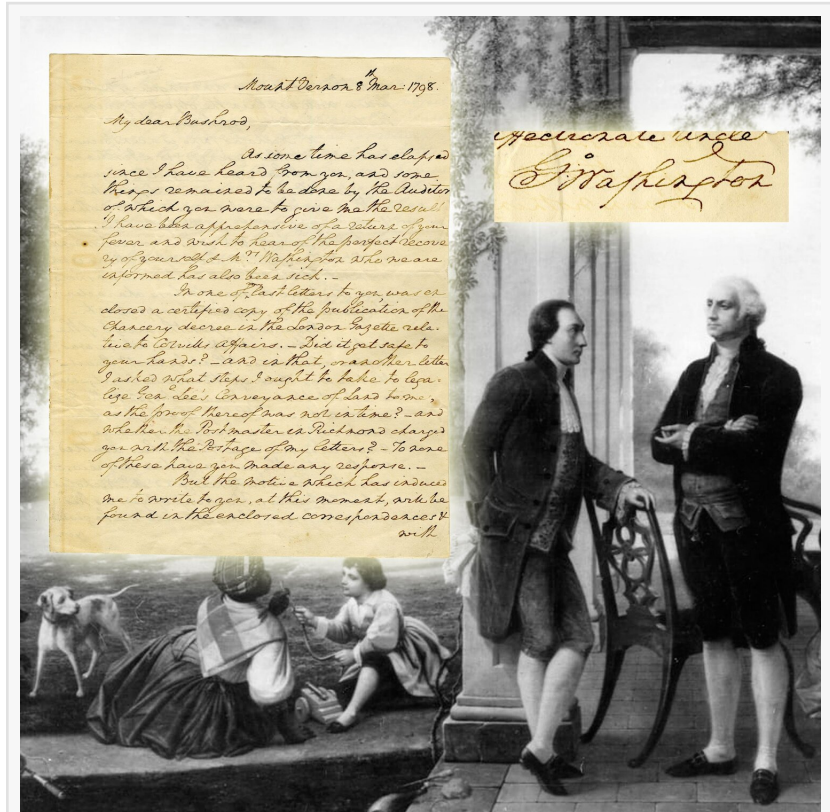 Mount Vernon 8th Mar: 1798.
My dear Bushrod,
As some time has elapsed
since I have heard from you, and some
things remained to be done by the Auditor
of which you were to give me the result
I have been apprehensive of a return of your
fever and wish to hear of the perfect recove
ry of yourself & Mrs Washington who we are
informed has also been sick. –
In one of my last letters to you was en
closed a certified copy of the publication of the
Chancery decree in the London Gazette rela-
tive to Colvills affairs. – Did it get safe to
your hands? – and in that, or another letter
I asked what steps I ought to take to lega-
lize Gen Lee's Conveyance of Land to me.
as the proof thereof was not in time? – and
whether the Postmaster in Richmond charged
you with the Postage of my letters? – To none
of these have you made any response. –
But the motive which has induced
me to write to you, at this moment, will be
found in the enclosed correspondences &
with
affectionate uncle
Go Washington